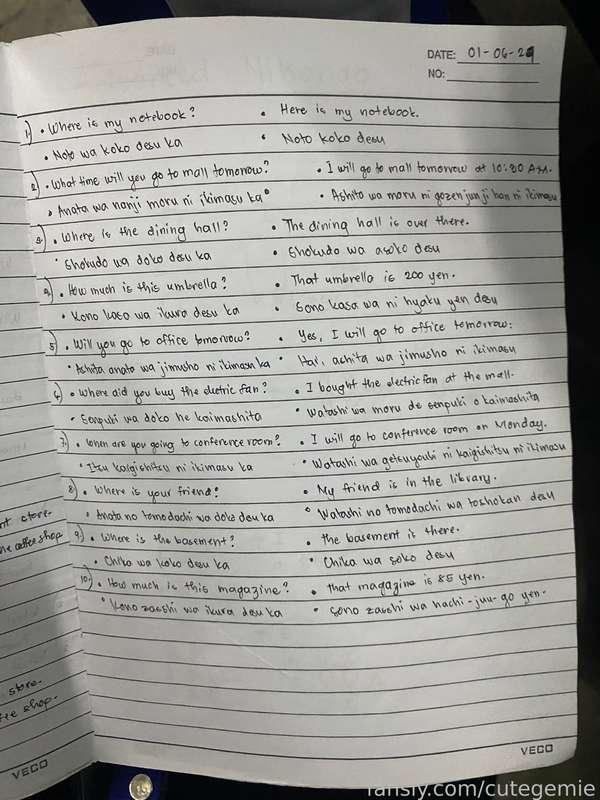 DATE: 01-06-29
NO:
1) • Where is my notebook? • Here is my notebook.
• Noto wa koko desu ka • Noto koko desu
2) • What time will you go to mall tomorrow? • I will go to mall tomorrow at 10:30 AM.
• Anata wa nanji moru ni ikimasu ka • Ashita wa moru ni gozen juu ji han ni ikimasu
3) • Where is the dining hall? • The dining hall is over there.
• Shokudo wa doko desu ka • Shokudo wa asoko desu
4) • How much is this umbrella? • That umbrella is 200 yen.
• Kono kasa wa ikura desu ka • Sono kasa wa ni hyaku yen desu
5) • Will you go to office tomorrow? • Yes, I will go to office tomorrow.
• Ashita anata wa jimusho ni ikimasu ka • Hai, ashita wa jimusho ni ikimasu
6) • Where did you buy the electric fan? • I bought the electric fan at the mall.
• Senpuki wa doko he kaimashita • Watashi wa moru de senpuki o kaimashita
7) • When are you going to conference room? • I will go to conference room on Monday.
• Itsu kaigishitsu ni ikimasu ka • Watashi wa getsuyoubi ni kaigishitsu ni ikimasu
8) • Where is your friend? • My friend is in the library.
• Anata no tomodachi wa doko desu ka • Watashi no tomodachi wa toshokan desu
9) • Where is the basement? • the basement is there.
• Chika wa koko desu ka • Chika wa soko desu
10) • How much is this magazine? • that magazine is 85 yen.
• Kono zasshi wa ikura desu ka • sono zasshi wa hachi-juu-go yen.
store.
the coffee shop
store.
coffee shop.
VECO
VECO
fansly.com/cutegemie